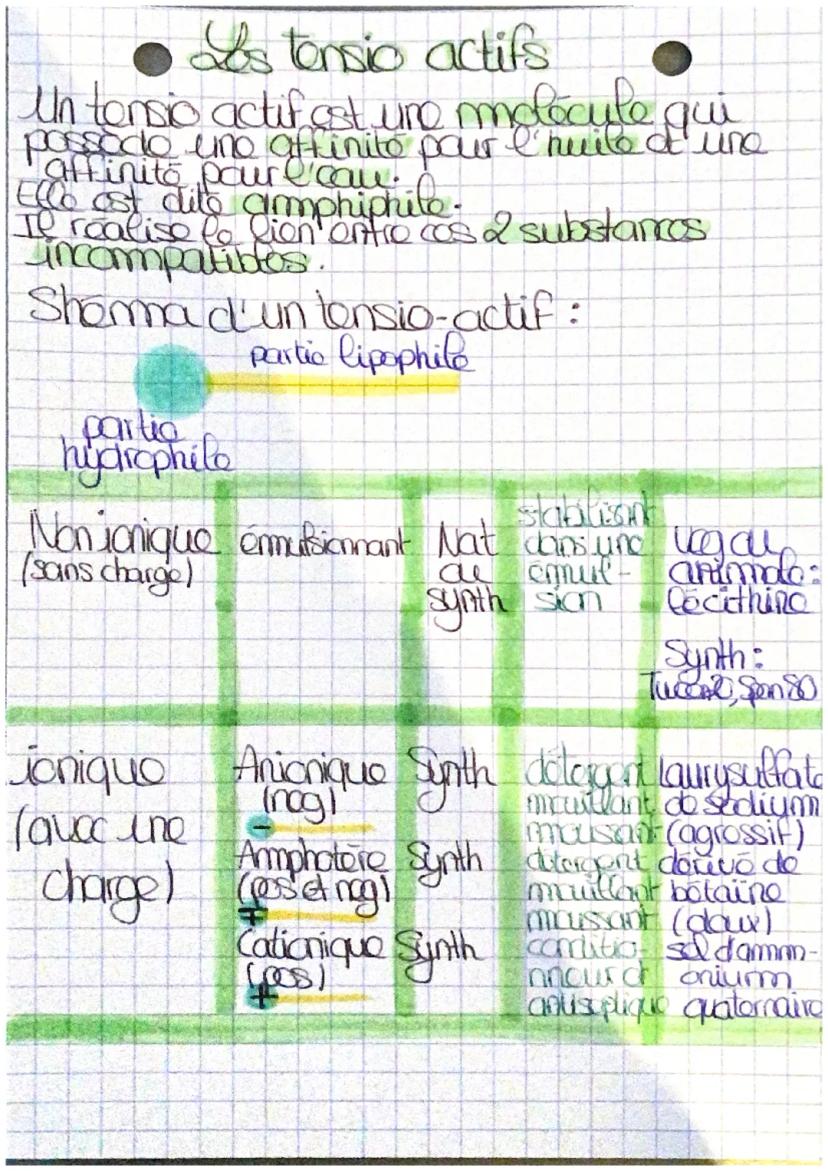 Les tensio actifs
Un tensio actif est une molécule qui
possède une affinité pour l'huile et une
affinité pour l'eau.
Elle est dite amphiphile.
Il réalise le lien entre ces 2 substances
incompatibles.
Shéma d'un tensio-actif :
partie lipophile
partie
hydrophile
Non ionique
(sans charge)
émulsionnant
Nat
ou
synth
stabilisant
dans une
émul-
sion
veg ou
animale :
lécithine
Synth :
Tween20, Span 80
ionique
(avec une
charge)
Anionique
(neg)
-
Synth
détergent
mouillant
moussant
laurysulfate
de sodium
(agressif)
Amphotère
(pos et neg)
+
Synth
détergent
mouillant
moussant
dérivé de
bétaïne
(doux)
Cationique
(pos)
+
Synth
conditio-
nneur et
antiseptique
sel d'amm-
onium
quaternaire